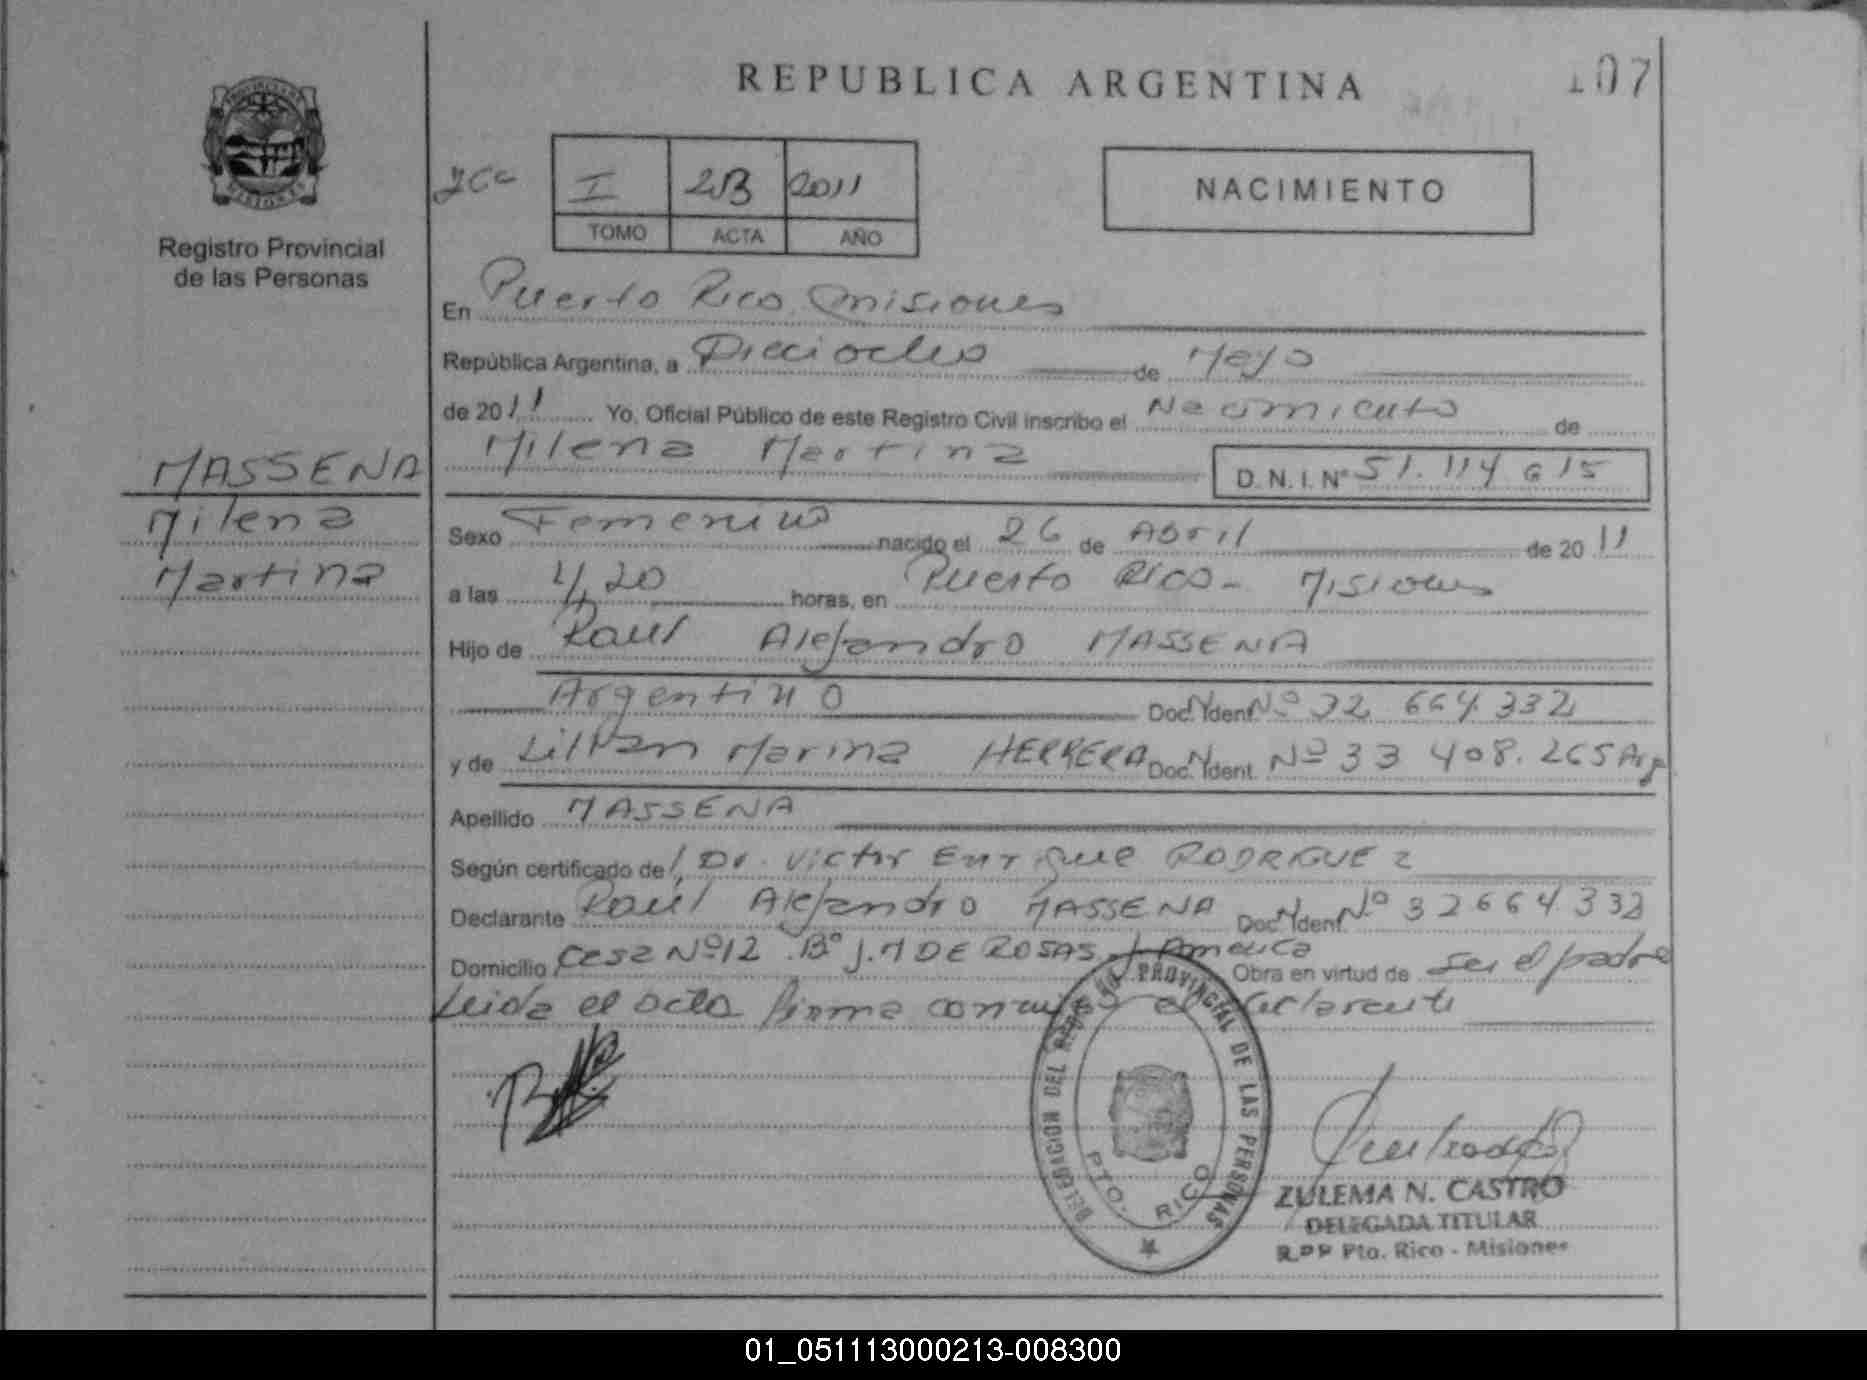 REPUBLICA ARGENTINA
107
I 213 2011
TOMO ACTA AÑO
NACIMIENTO
Registro Provincial
de las Personas
En Puerto Rico, Misiones
República Argentina, a Dieciocho de Mayo
de 2011 Yo, Oficial Público de este Registro Civil inscribo el Nacimiento de
Milena Martina D.N.I. Nº 51.114.615
MASSENA
Milena
Martina
Sexo Femenino nacido el 26 de Abril de 2011
a las 4,20 horas, en Puerto Rico - Misiones
Hijo de Raul Alejandro MASSENA
Argentino Doc. Ident. Nº 32 664.332
y de Lilian Marina HERRERA Doc. Ident. Nº 33 408.265 Arg
Apellido MASSENA
Según certificado del Dr. Victor Enrique RODRIGUEZ
Declarante Raúl Alejandro MASSENA Doc. Ident. Nº 32664.332
Domicilio Casa Nº12 Bº J.M DE ROSAS. America Obra en virtud de ser el padre
Leida el acta firma conmigo el declarante
DELEGACION DEL REGISTRO PROVINCIAL DE LAS PERSONAS
PTO. RICO
ZULEMA N. CASTRO
DELEGADA TITULAR
R.P.P Pto. Rico - Misiones
01_051113000213-008300